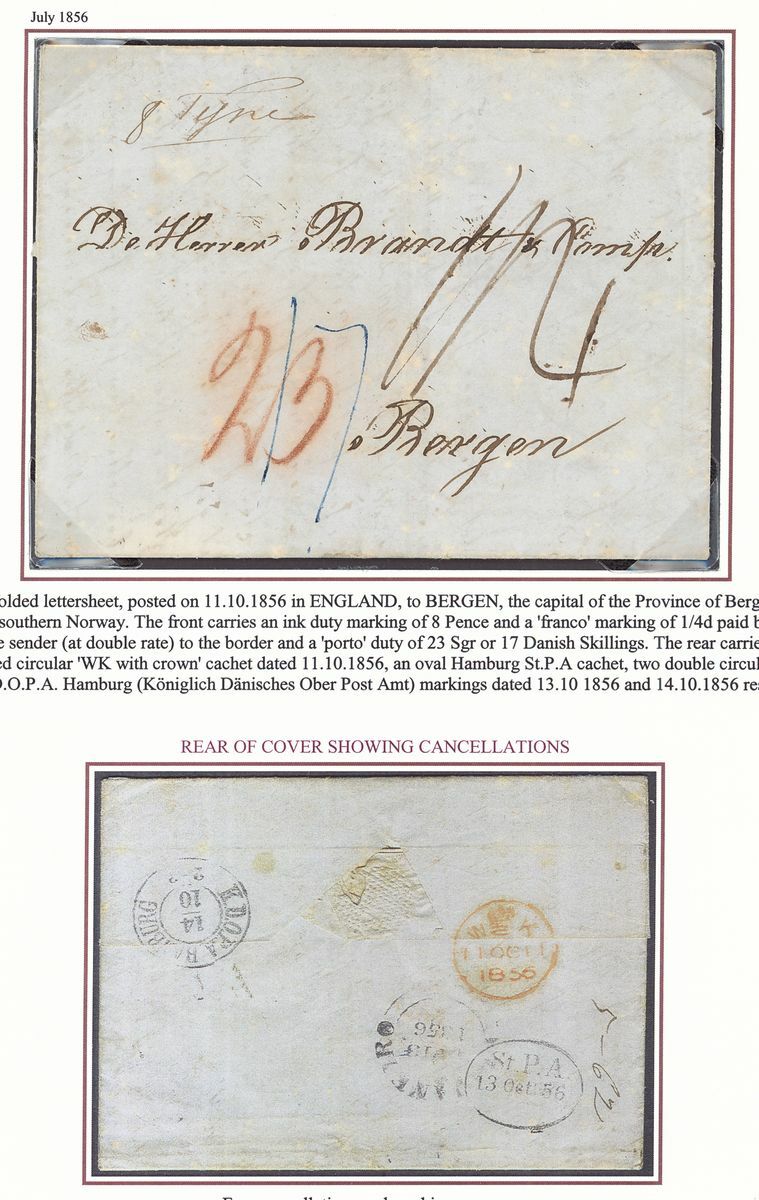 July 1856
Tyne
De Herrer Brandt & Comp.
1/4
23
17
Bergen
olded lettersheet, posted on 11.10.1856 in ENGLAND, to BERGEN, the capital of the Province of Berg
southern Norway. The front carries an ink duty marking of 8 Pence and a 'franco' marking of 1/4d paid b
e sender (at double rate) to the border and a 'porto' duty of 23 Sgr or 17 Danish Skillings. The rear carrie
ed circular 'WK with crown' cachet dated 11.10.1856, an oval Hamburg St.P.A cachet, two double circul
D.O.P.A. Hamburg (Königlich Dänisches Ober Post Amt) markings dated 13.10 1856 and 14.10.1856 re
REAR OF COVER SHOWING CANCELLATIONS
K.D.O.P.A.
14
10
W K
11 OC 11
1856
St. P. A.
13 Oct. 56